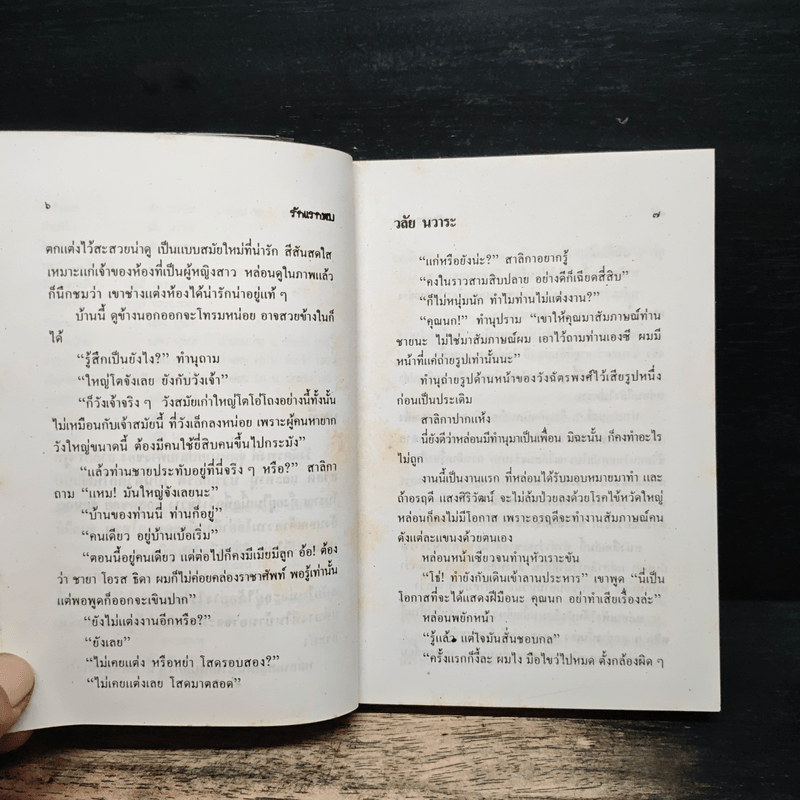 ๖
รักแรกพบ
ตกแต่งไว้สะสวยน่าดู เป็นแบบสมัยใหม่ที่น่ารัก สีสันสดใส
เหมาะแก่เจ้าของห้องที่เป็นผู้หญิงสาว หล่อนดูในภาพแล้ว
ก็นึกชมว่า เขาช่างแต่งห้องได้น่ารักน่าอยู่แท้ ๆ
บ้านนี้ ดูข้างนอกออกจะโทรมหน่อย อาจสวยข้างในก็
ได้
“รู้สึกเป็นยังไง?” ทำนุถาม
“ใหญ่โตจังเลย ยังกับวังเจ้า”
“ก็วังเจ้าจริง ๆ วังสมัยเก่าใหญ่โตโอ่โถงอย่างนี้ทั้งนั้น
ไม่เหมือนกับเจ้าสมัยนี้ ที่วังเล็กลงหน่อย เพราะผู้คนหายาก
วังใหญ่ขนาดนี้ ต้องมีคนใช้ยี่สิบคนขึ้นไปกระมัง”
“แล้วท่านชายประทับอยู่ที่นี่จริง ๆ หรือ?” สาลิกา
ถาม “แหม! มันใหญ่จังเลยนะ”
“บ้านของท่านนี่ ท่านก็อยู่”
“คนเดียว อยู่บ้านเบ้อเริ่ม”
“ตอนนี้อยู่คนเดียว แต่ต่อไปก็คงมีเมียมีลูก อ้อ! ต้อง
ว่า ชายา โอรส ธิดา ผมก็ไม่ค่อยคล่องราชาศัพท์ พอรู้เท่านั้น
แต่พอพูดก็ออกจะเขินปาก”
“ยังไม่แต่งงานอีกหรือ?”
“ยังเลย”
“ไม่เคยแต่ง หรือหย่า โสดรอบสอง?”
“ไม่เคยแต่งเลย โสดมาตลอด”
วลัย นวาระ
๗
“แก่หรือยังน่ะ?” สาลิกาอยากรู้
“คงในราวสามสิบปลาย อย่างดีก็เฉียดสี่สิบ”
“ก็ไม่หนุ่มนัก ทำไมท่านไม่แต่งงาน?”
“คุณนก!” ทำนุปราม “เขาให้คุณมาสัมภาษณ์ท่าน
ชายนะ ไม่ใช่มาสัมภาษณ์ผม เอาไว้ถามท่านเองซี ผมมี
หน้าที่แค่ถ่ายรูปเท่านั้นนะ”
ทำนุถ่ายรูปด้านหน้าของวังฉัตรพงศ์ไว้เสียรูปหนึ่ง
ก่อนเป็นประเดิม
สาลิกาปากแห้ง
นี่ยังดีว่าหล่อนมีทำนุมาเป็นเพื่อน มิฉะนั้น ก็คงทำอะไร
ไม่ถูก
งานนี้เป็นงานแรก ที่หล่อนได้รับมอบหมายมาทำ และ
ถ้าอรฤดี แสงศิริวัฒน์ จะไม่ล้มป่วยลงด้วยโรคไข้หวัดใหญ่
หล่อนก็คงไม่มีโอกาส เพราะอรฤดีจะทำงานสัมภาษณ์คน
ดังแต่ละแขนงด้วยตนเอง
หล่อนหน้าเซียวจนทำนุหัวเราะขัน
“โธ่! ทำยังกับเดินเข้าลานประหาร” เขาพูด “นี่เป็น
โอกาสที่จะได้แสดงฝีมือนะ คุณนก อย่าทำเสียเรื่องล่ะ”
หล่อนพยักหน้า
“รู้แล้ว แต่ใจมันสั่นชอบกล”
“ครั้งแรกก็งี้ละ ผมไง มือไขว่ไปหมด ตั้งกล้องผิด ๆ